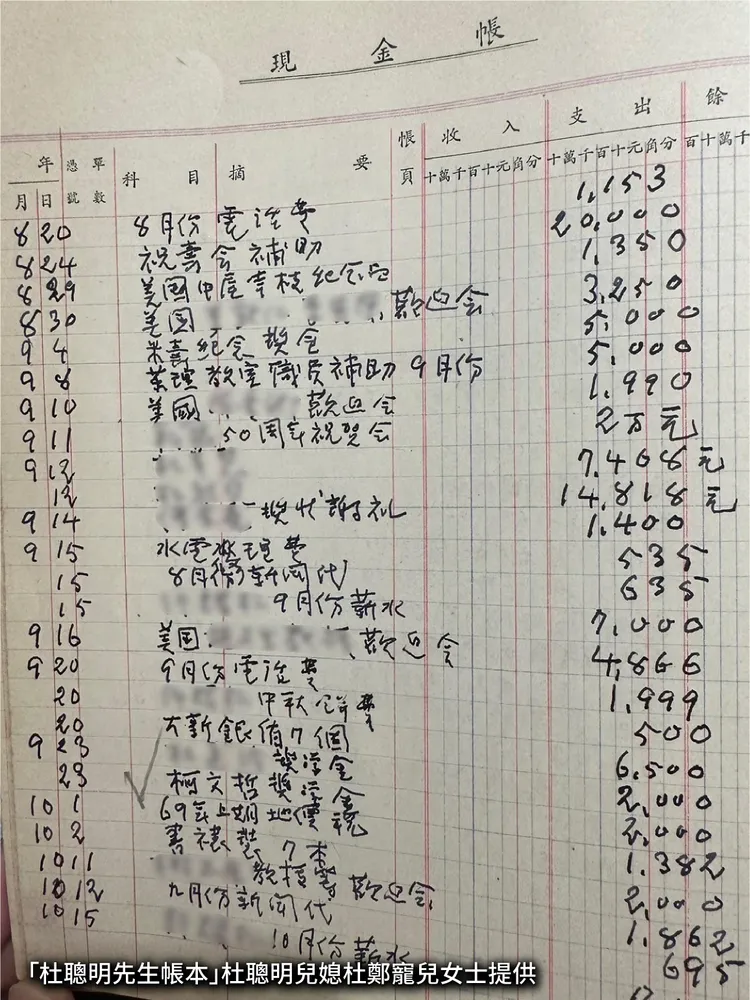 現金帳
年 憑單 科目 摘要 帳 收入 支出 餘
月 日 號數 頁 十萬千百十元角分 十萬千百十元角分 百十萬千
8 20 8月份電話費 1,153
8 24 祝壽会補助 20,000
8 29 美国中屋幸枝紀念品 1,350
8 30 美国 歡迎会 3,250
9 4 米壽紀念獎金 5,000
9 8 藥理教室職員補助9月份 5,000
9 10 美國 歡迎会 1,990
9 11 50周年祝賀会 2万元
9 12 7,408元
12 14,818元
9 14 獎状謝礼 1,400
9 15 水電 費 535
15 8月份新闻代 635
15 9月份薪水 7,000
9 16 美国 歡迎会 4,866
9 20 9月份電話費 1,999
20 中秋餅費 500
20 大新銀盾7個 6,500
9 23 獎学金 2,000
23 柯文哲獎学金 2,000
10 1 69年上期地價稅 1,382
10 2 書 裝7本 2,000
10 11 教授等歡迎会 1,862
10 12 九月份新闻代 695
10 15 10月份薪水
「杜聰明先生帳本」杜聰明兒媳杜鄭寵兒女士提供